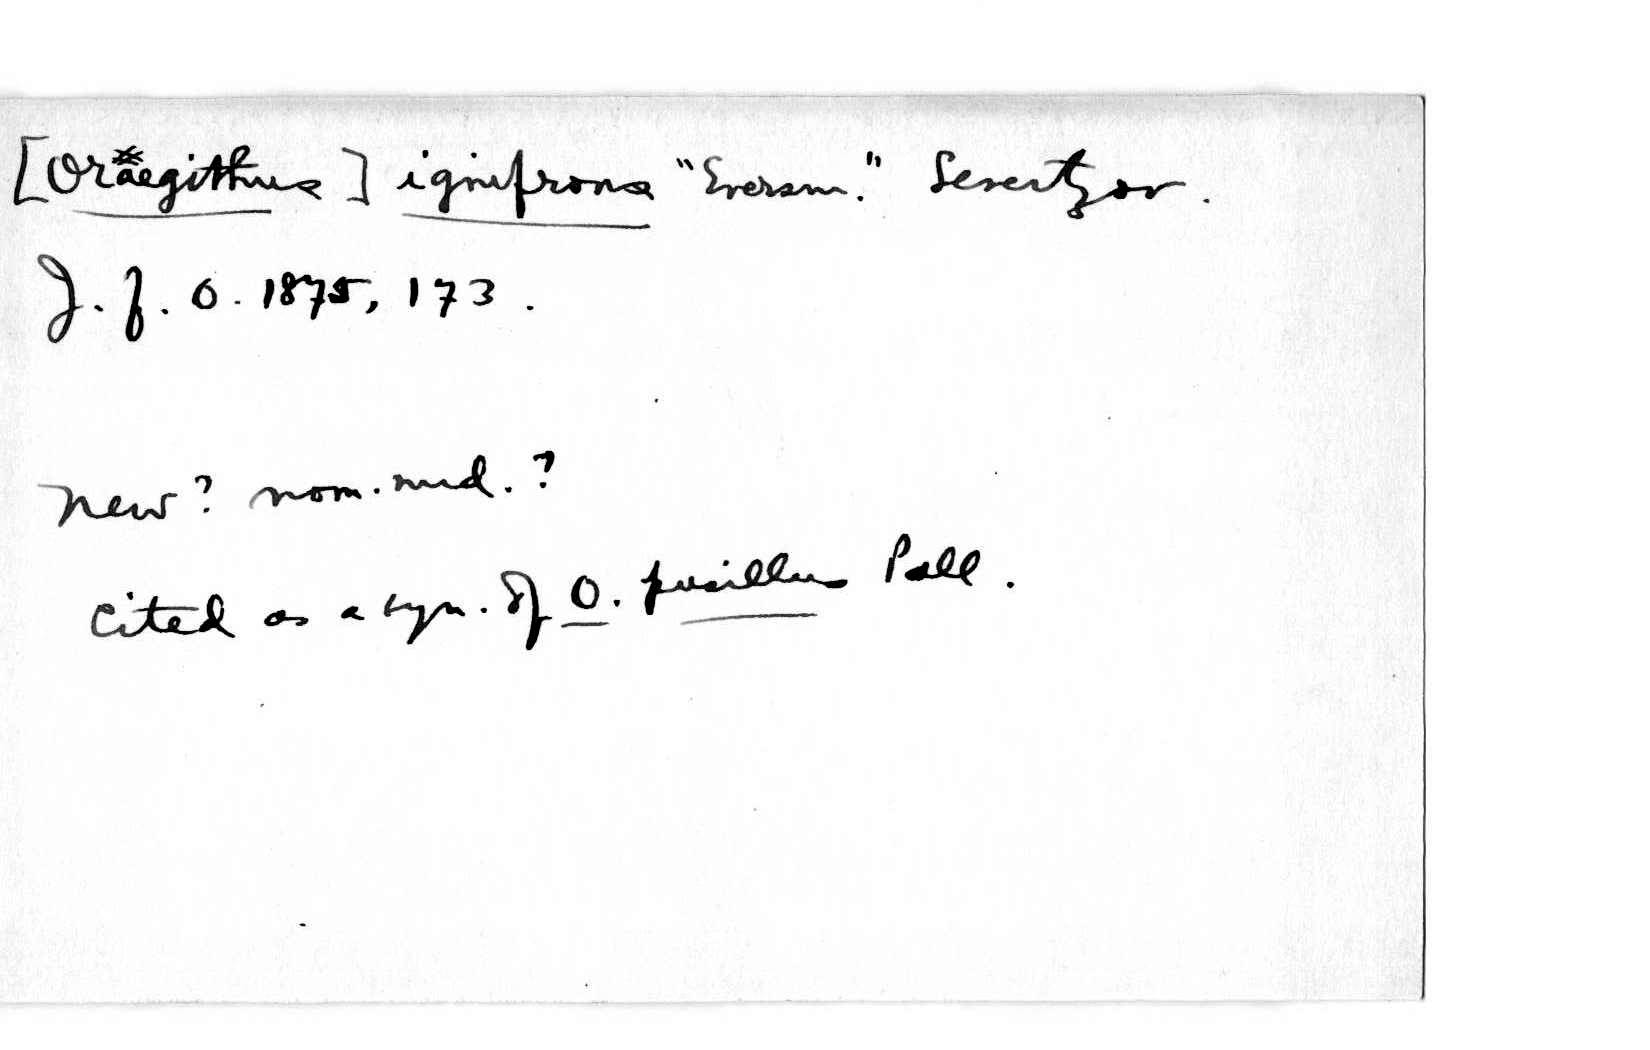 [Oraegithus] ignifrons "Eversm." Severtzov.
J. f. O. 1875, 173.
New? nom. nud.?
cited as a syn. of O. pusillus Pall.